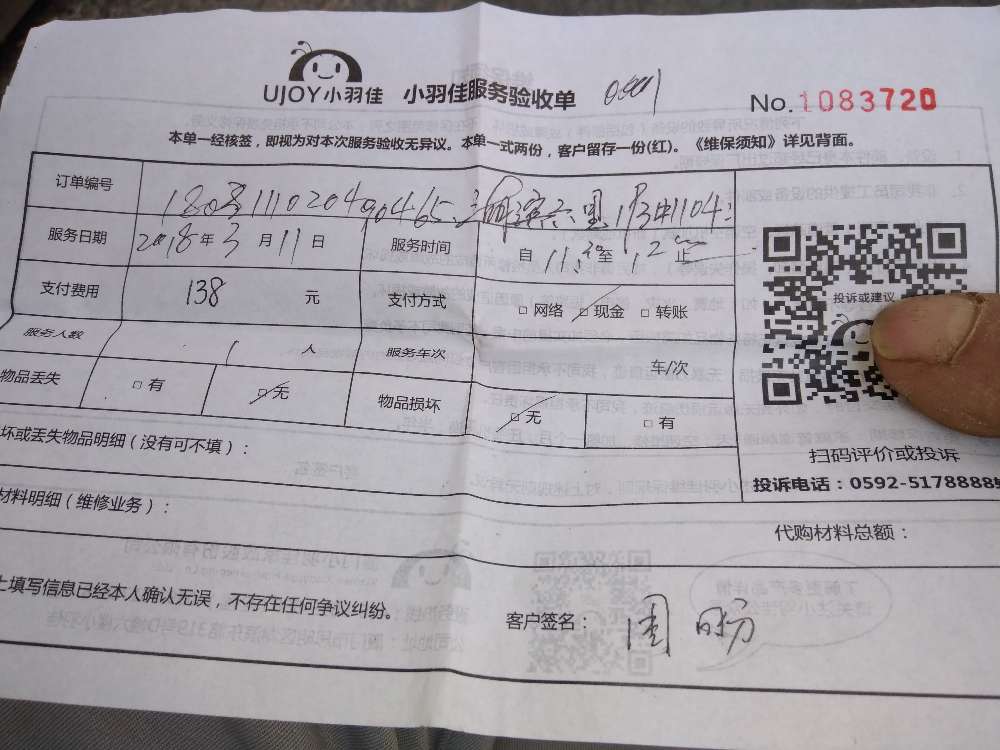 UJOY小羽佳 小羽佳服务验收单
No.1083720
本单一经核签，即视为对本次服务验收无异议。本单一式两份，客户留存一份(红)。《维保须知》详见背面。
订单编号
服务日期 2018年3月11日 服务时间 自 至 止
支付费用 138 元 支付方式 □网络 □现金 □转账
服务人数 1 人 服务车次 车/次
物品丢失 □有 □无 物品损坏 □无 □有
投诉或建议
扫码评价或投诉
投诉电话：0592-5178888
坏或丢失物品明细（没有可不填）：
材料明细（维修业务）：
代购材料总额：
上填写信息已经本人确认无误，不存在任何争议纠纷。
客户签名： 周